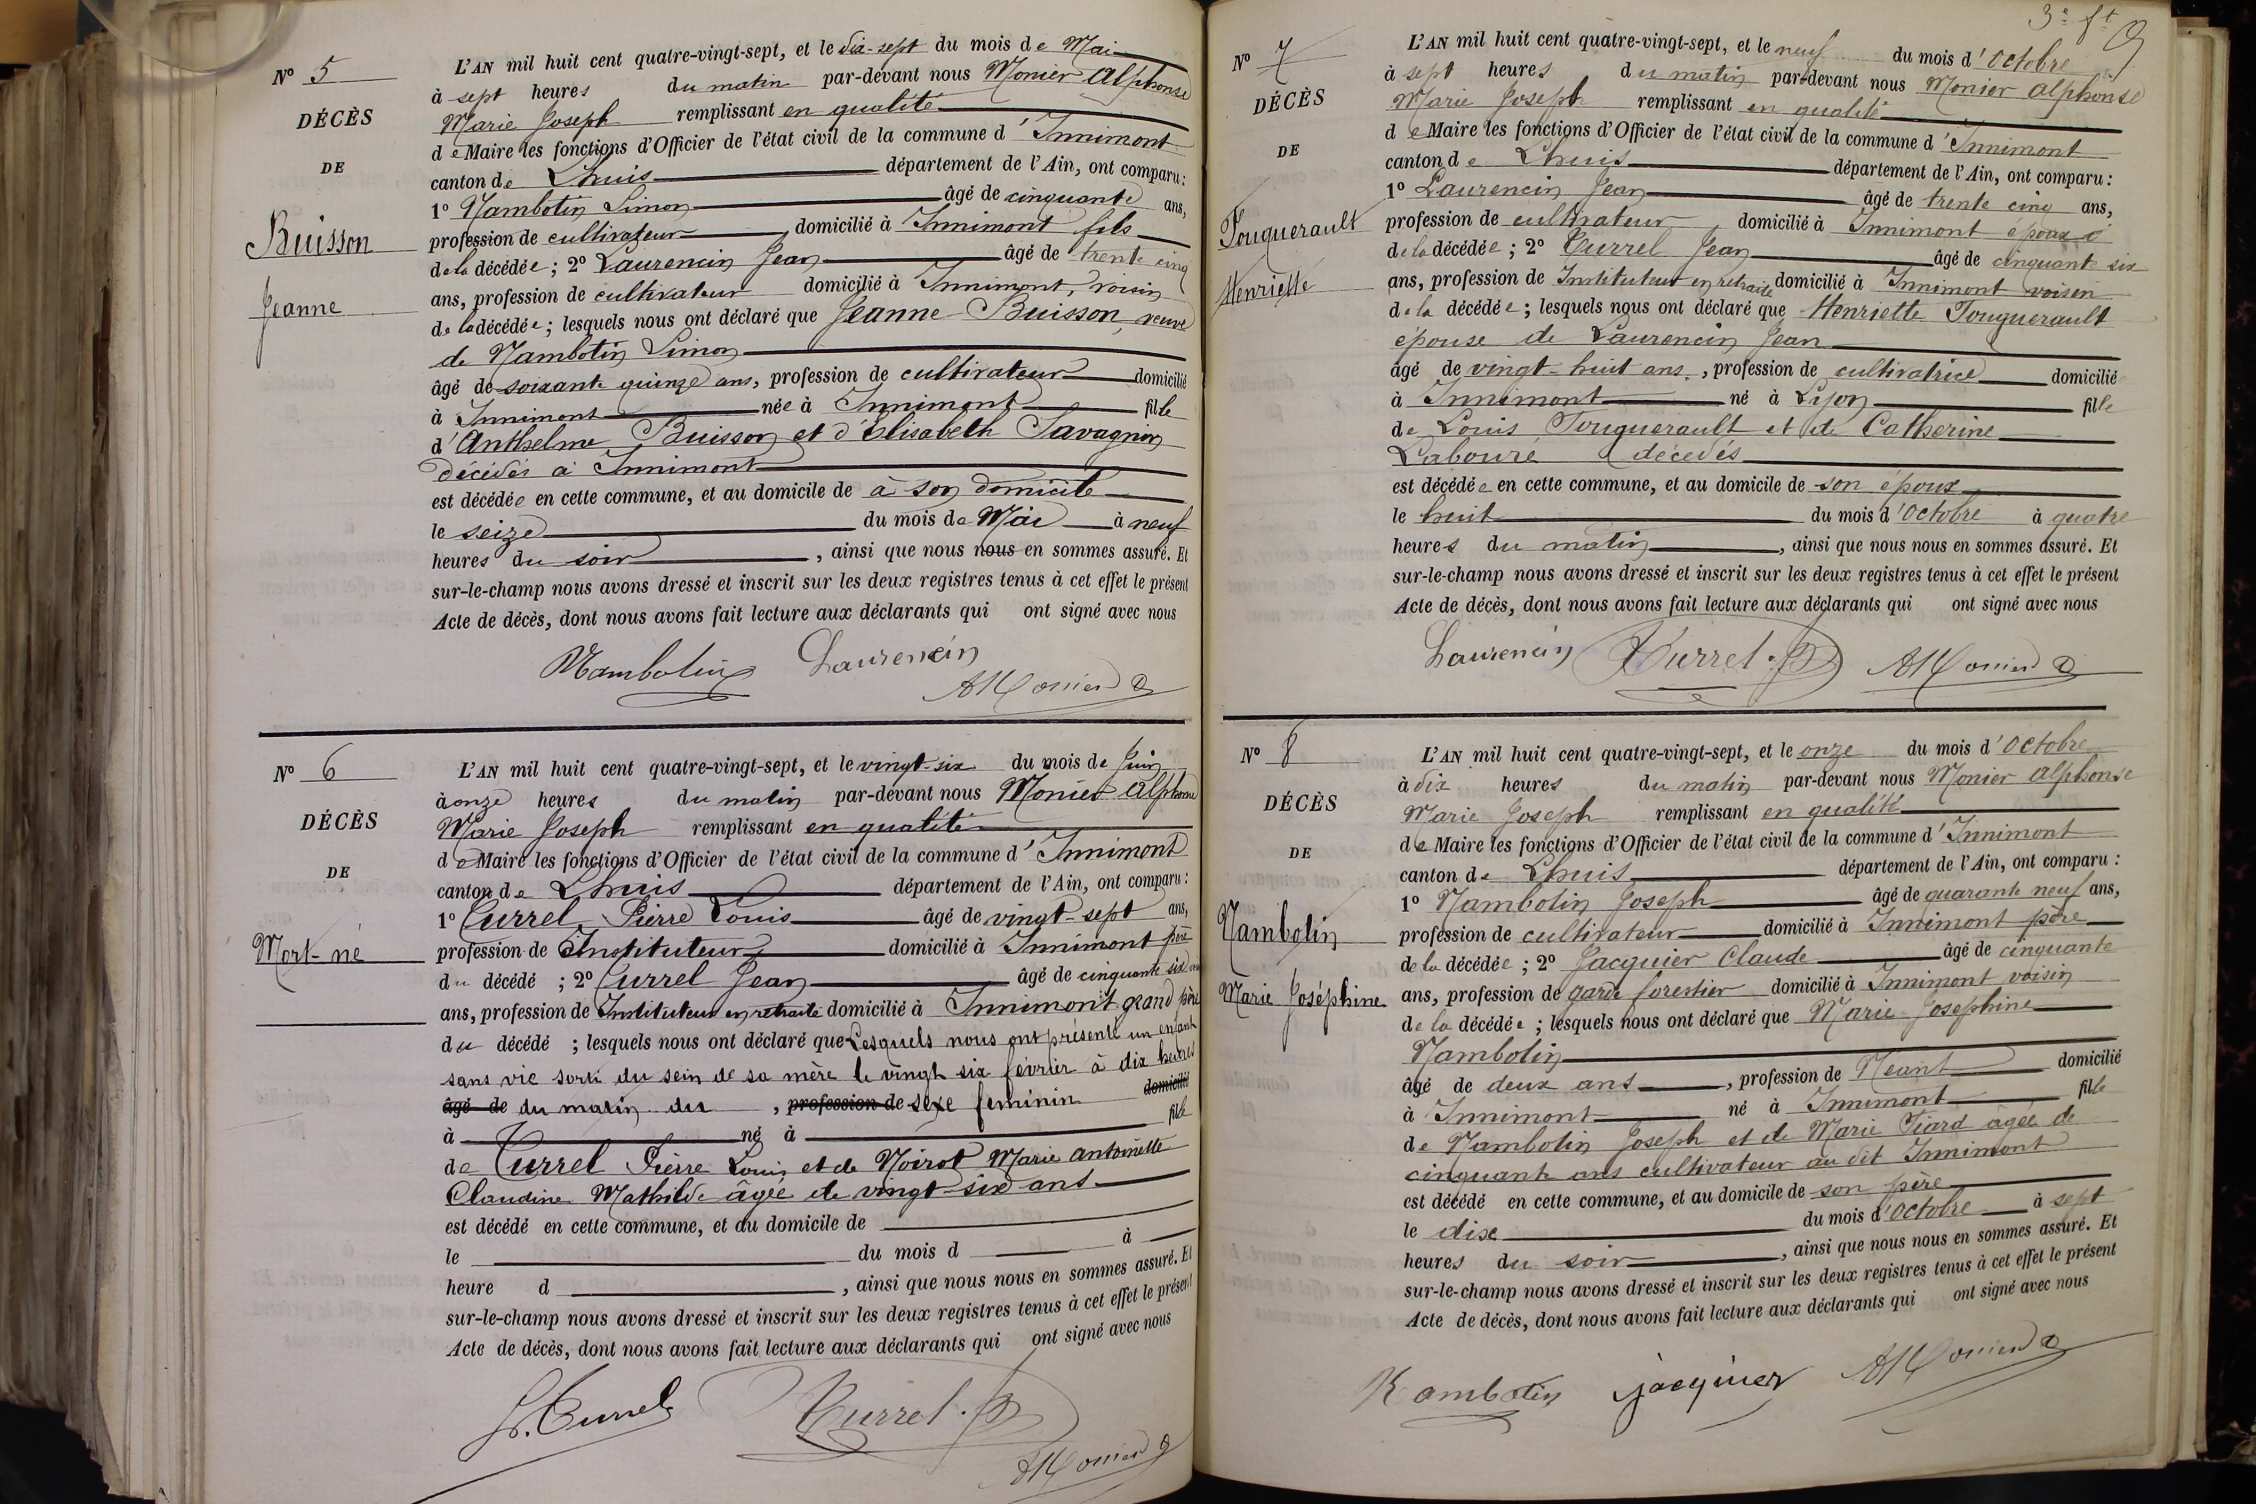 N° 5
DÉCÈS
DE
Buisson
Jeanne
L'AN mil huit cent quatre-vingt-sept, et le dix-sept du mois de Mai
à sept heures du matin par-devant nous Monier Alphonse
Marie Joseph remplissant en qualité
de Maire les fonctions d'Officier de l'état civil de la commune d'Innimont
canton de Lhuis département de l'Ain, ont comparu :
1° Nambotin Simon âgé de cinquante ans,
profession de cultivateur domicilié à Innimont fils
de la décédée ; 2° Laurencin Jean âgé de trente cinq
ans, profession de cultivateur domicilié à Innimont, voisin
de la décédée ; lesquels nous ont déclaré que Jeanne Buisson veuve
de Nambotin Simon
âgé de soixante quinze ans, profession de cultivateur domicilié
à Innimont née à Innimont fille
d'Anthelme Buisson et d'Elisabeth Savagnin
décédés à Innimont
est décédée en cette commune, et au domicile de à son domicile
le seize du mois de Mai à neuf
heures du soir, ainsi que nous nous en sommes assuré. Et
sur-le-champ nous avons dressé et inscrit sur les deux registres tenus à cet effet le présent
Acte de décès, dont nous avons fait lecture aux déclarants qui ont signé avec nous
Nambotin Laurencin
AMonier
N° 6
DÉCÈS
DE
Mort-né
L'AN mil huit cent quatre-vingt-sept, et le vingt-six du mois de Juin
à onze heures du matin par-devant nous Monier Alphonse
Marie Joseph remplissant en qualité
de Maire les fonctions d'Officier de l'état civil de la commune d'Innimont
canton de Lhuis département de l'Ain, ont comparu :
1° Currel Pierre Louis âgé de vingt-sept ans,
profession de Instituteur domicilié à Innimont père
du décédé ; 2° Currel Jean âgé de cinquante six ans
ans, profession de Instituteur en retraite domicilié à Innimont grand père
du décédé ; lesquels nous ont déclaré que Lesquels nous ont présenté un enfant
sans vie sorti du sein de sa mère le vingt six février à dix heures
âgé de du matin du , profession de sexe féminin domicilié
à né à fille
de Currel Pierre Louis et de Noirot Marie Antoinette
Claudine Mathilde âgée de vingt-six ans
est décédé en cette commune, et au domicile de
le du mois d à
heure d , ainsi que nous nous en sommes assuré. Et
sur-le-champ nous avons dressé et inscrit sur les deux registres tenus à cet effet le présent
Acte de décès, dont nous avons fait lecture aux déclarants qui ont signé avec nous
L. Currel Currel
AMonier
3e ft
N° 7
DÉCÈS
DE
Fouquerault
Henriette
L'AN mil huit cent quatre-vingt-sept, et le neuf du mois d'Octobre
à sept heures du matin par-devant nous Monier Alphonse
Marie Joseph remplissant en qualité
de Maire les fonctions d'Officier de l'état civil de la commune d'Innimont
canton de Lhuis département de l'Ain, ont comparu :
1° Laurencin Jean âgé de trente cinq ans,
profession de cultivateur domicilié à Innimont époux
de la décédée ; 2° Currel Jean âgé de cinquante six
ans, profession de Instituteur en retraite domicilié à Innimont voisin
de la décédée ; lesquels nous ont déclaré que Henriette Fouquerault
épouse de Laurencin Jean
âgé de vingt-huit ans, profession de cultivatrice domicilié
à Innimont né à Lyon fille
de Louis Fouquerault et de Catherine
Labouré décédés
est décédée en cette commune, et au domicile de son époux
le huit du mois d'Octobre à quatre
heures du matin, ainsi que nous nous en sommes assuré. Et
sur-le-champ nous avons dressé et inscrit sur les deux registres tenus à cet effet le présent
Acte de décès, dont nous avons fait lecture aux déclarants qui ont signé avec nous
Laurencin Currel AMonier
N° 8
DÉCÈS
DE
Nambotin
Marie Joséphine
L'AN mil huit cent quatre-vingt-sept, et le onze du mois d'Octobre
à dix heures du matin par-devant nous Monier Alphonse
Marie Joseph remplissant en qualité
de Maire les fonctions d'Officier de l'état civil de la commune d'Innimont
canton de Lhuis département de l'Ain, ont comparu :
1° Nambotin Joseph âgé de quarante neuf ans,
profession de cultivateur domicilié à Innimont père
de la décédée ; 2° Jacquier Claude âgé de cinquante
ans, profession de garde forestier domicilié à Innimont voisin
de la décédée ; lesquels nous ont déclaré que Marie-Josephine
Nambotin
âgé de deux ans, profession de Néant domicilié
à Innimont né à Innimont fille
de Nambotin Joseph et de Marie Tiard âgée de
cinquante ans cultivateur au dit Innimont
est décédé en cette commune, et au domicile de son père
le dix du mois d'Octobre à sept
heures du soir, ainsi que nous nous en sommes assuré. Et
sur-le-champ nous avons dressé et inscrit sur les deux registres tenus à cet effet le présent
Acte de décès, dont nous avons fait lecture aux déclarants qui ont signé avec nous
Nambotin jacquier AMonier